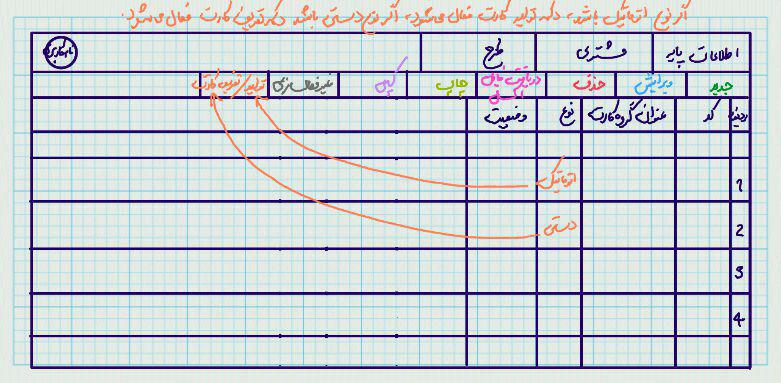 اگر نوع اتوماتیک باشد، دکمه تولید کارت فعال می‌شود، اگر نوع دستی باشد دکمه تعریف کارت فعال می‌شود.
اطلاعات پایه مشتری طرح نام کاربری
جدید ویرایش حذف دریافت فایل اکسل چاپ کپی غیرفعال سازی تولید/تعریف کارت
ردیف کد عنوان گروه کارت نوع وضعیت
1 اتوماتیک
2 دستی
3
4